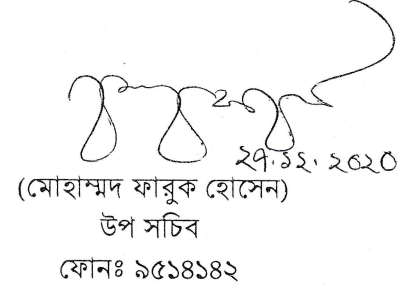 ২৭.১২.২০২০
(মোহাম্মদ ফারুক হোসেন)
উপ সচিব
ফোনঃ ৯৫১৪১৪২